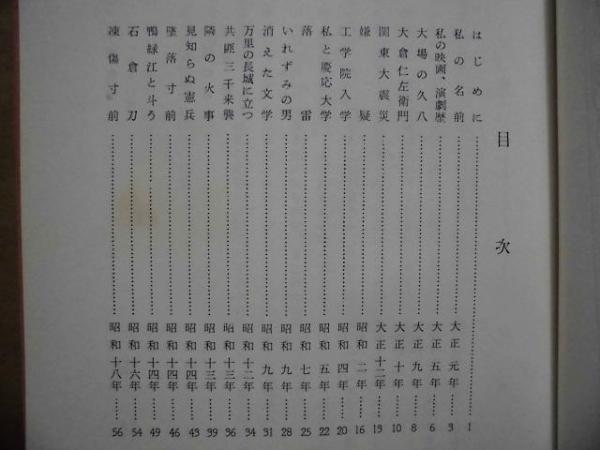 目次
はじめに……1
私の名前……大正元年……3
私の映画、演劇歴……大正五年……6
大場の久八……大正九年……8
大倉仁左衛門……大正十年……10
関東大震災……大正十二年……13
嫌疑……昭和二年……16
工学院入学……昭和四年……20
私と慶応大学……昭和五年……22
落雷……昭和七年……25
いれずみの男……昭和九年……28
消えた文学……昭和九年……31
万里の長城に立つ……昭和十二年……34
共匪三千来襲……昭和十三年……36
隣の火事……昭和十三年……39
見知らぬ憲兵……昭和十四年……43
墜落寸前……昭和十四年……46
鴨緑江と斗う……昭和十四年……49
石倉刀……昭和十六年……54
凍傷寸前……昭和十八年……56